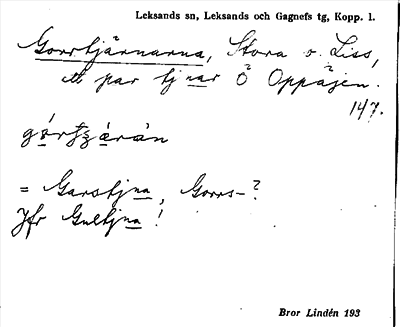 Leksands sn, Leksands och Gagnefs tg, Kopp. l.
Gorrtjärnarna, Stora o. Liss,
ett par tjnar Ö Oppåjen.
147.
= Garstjna, Gorrs-?
Jfr Gultjna!
Bror Lindén 193